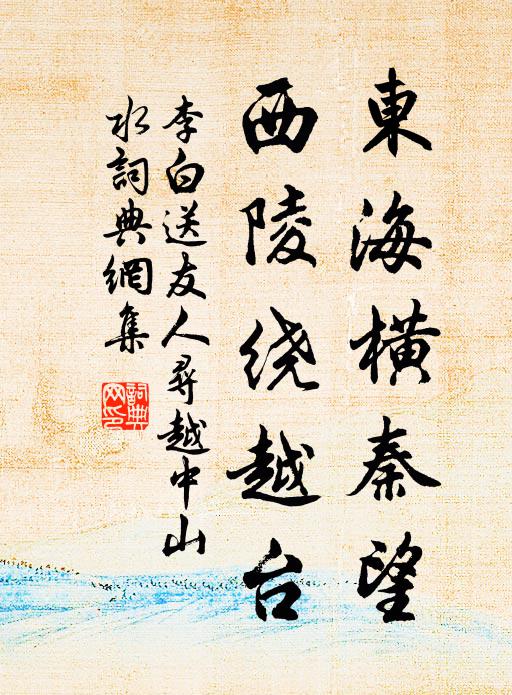 東海橫秦望
西陵绕越台
李白送友人尋越中山
水詞典網集
詞典
网印